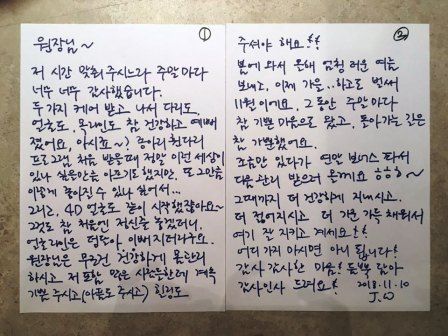 ①
원장님~
저 시간 맞춰 주시느라 주말마다
너무 너무 감사했습니다.
두가지 케어 받고 나서 다리도,
얼굴도, 목라인도 참 건강하고 예뻐
졌어요, 아시죠~? 종아리 첫 다리
프로그램 처음 받을때 정말 이런 세상이
있나 싶을만큼 아프기도 했지만, 또 그만큼
이렇게 좋아질 수 있나 싶어서...
그리고, 40 얼굴도 같이 시작했잖아요~
그것도 참 처음엔 정신줄 놓겠더니,
얼굴라인은 더 많이 이뻐지더라구요.
원장님은 무조건 건강하게 몸관리
하시고, 저 포함 많은 사람들한테 계속
기쁨 주시고(아픔도 주시고) 힐링도
②
주셔야 해요!!
봄에 와서 올해 엄청 더운 여름
보내고, 이제 가을..하고도 벌써
11월이에요. 그동안 주말마다
참 기쁜 마음으로 왔고, 돌아가는 길은
참 가뿐했어요.
조금만 있다가 연말 보너스 타서
다음 관리 받으러 올께요 ㅎㅎㅎ~
그때까지 더 건강하게 지내시고.
더 젊어지시고 더 기운 가득 채워서
여기 잘 지키고 계세요!
어디 가지 마시면 아니 됩니다!
감사 감사한 마음! 듬뿍 담아
감사인사 드려요!
2018.11.10
J.W